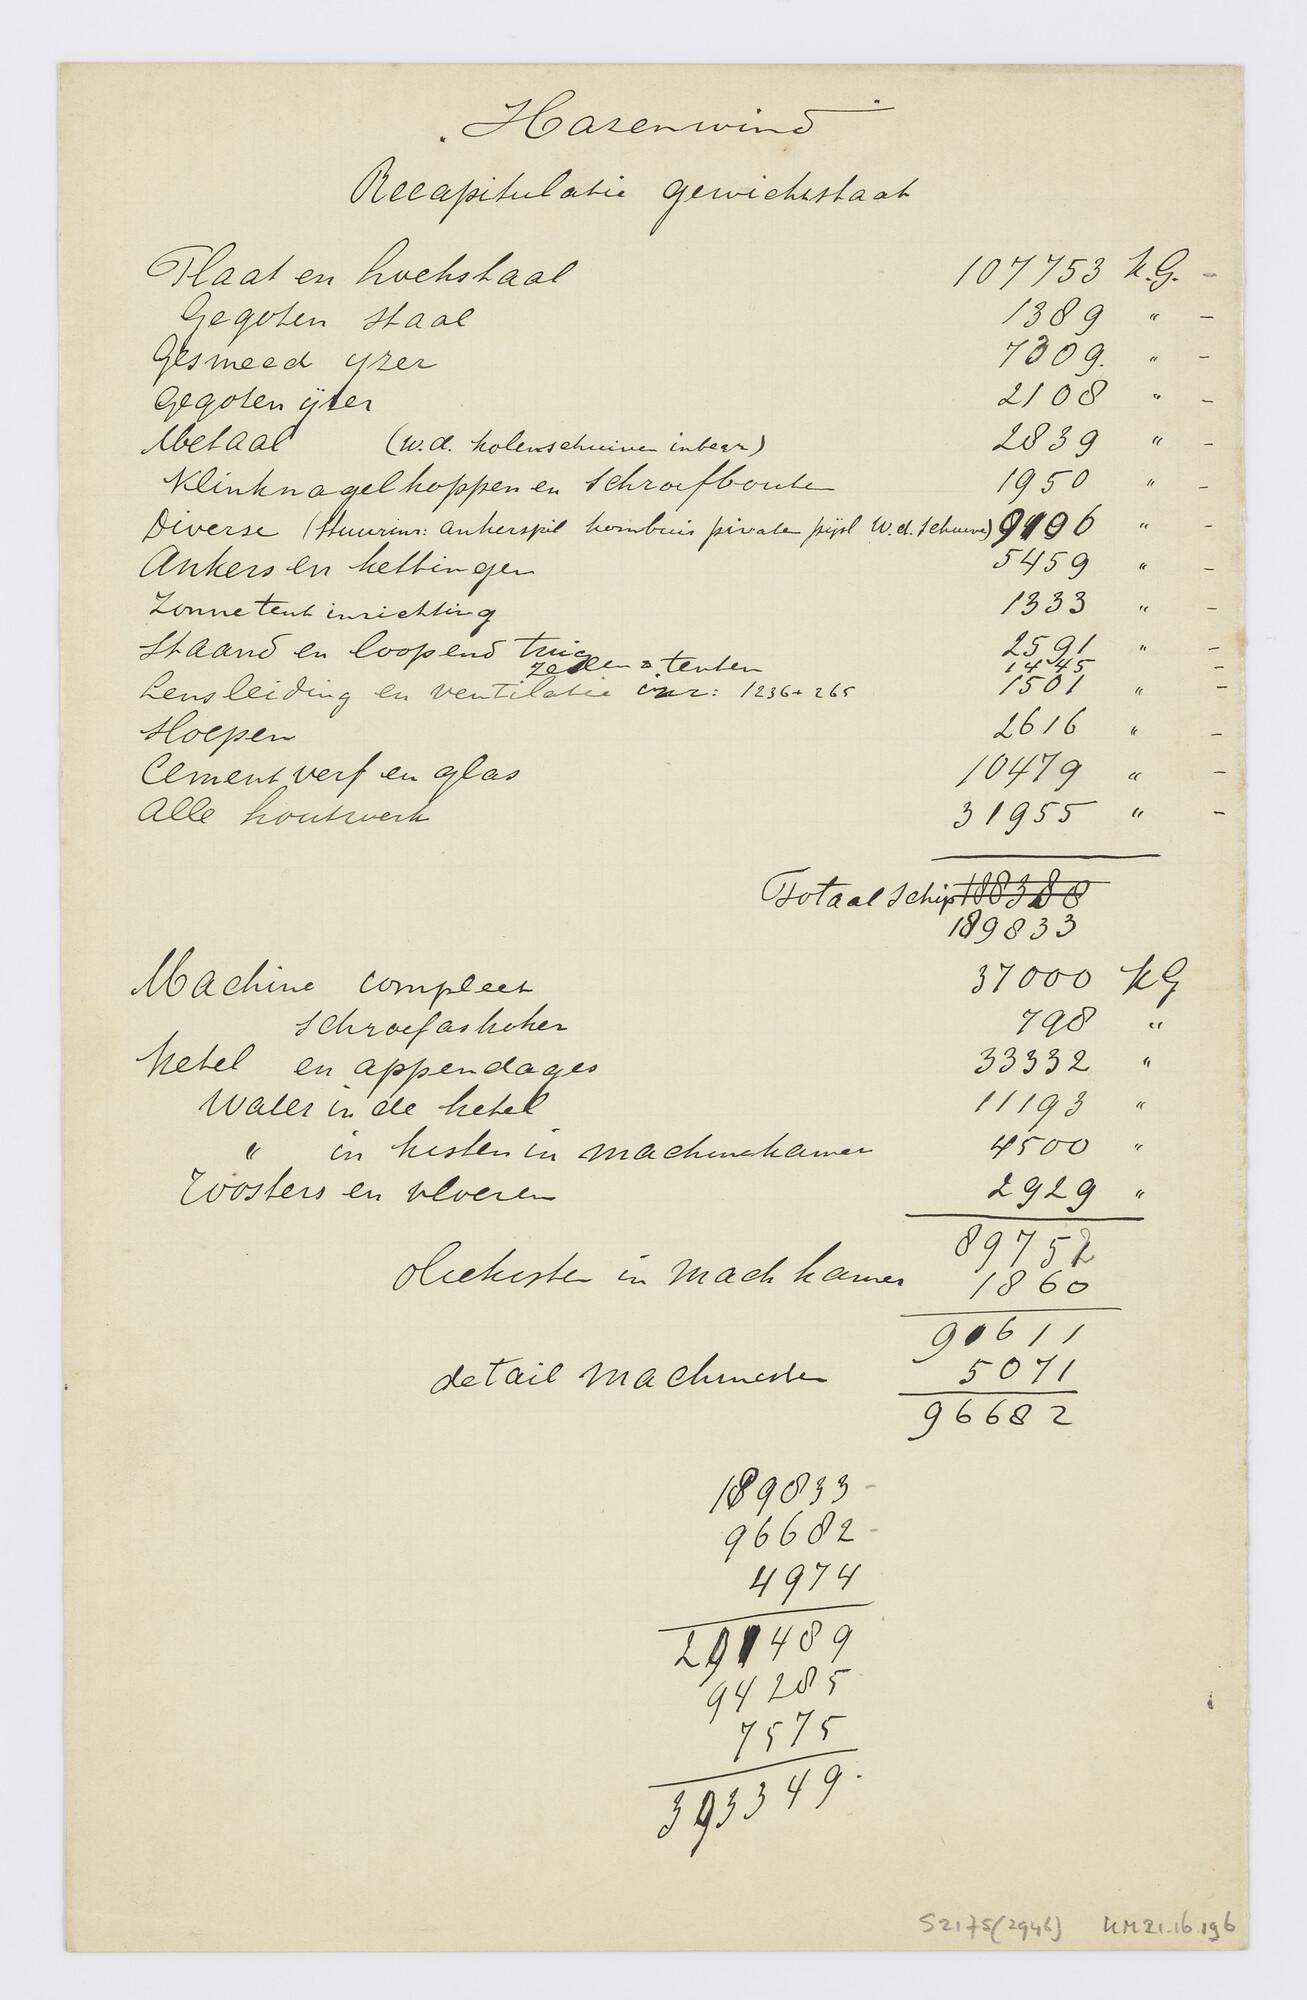 „Hazenwind"
Recapitulatie gewichtstaat
Plaat en hoekstaal 107753 K.G. -
Gegoten staal 1389 " -
Gesmeed yzer 7309. " -
Gegoten ijzer 2108 " -
Metaal (W.d. kolenschuiven inbegr) 2839 " -
Klinknagelkoppen en Schroefbouten 1950 " -
Diverse (Stuurinr: ankerspil kombuis privaten pijpl W.d. Schuiven) 9106 " -
Ankers en kettingen 5459 " -
Zonnetent inrichting 1333 " -
Staand en loopend tuig 2591 " -
Zeilen & tenten 1445 -
Lensleiding en ventilatie inr: 1236+265 1501 " -
Sloepen 2616 " -
Cement verf en glas 10479 " -
Alle houtwerk 31955 " -
Totaal Schip 188388
189833
Machine compleet 37000 KG
Schroefaskoker 798 "
Ketel en appendages 33332 "
Water in de ketel 11193 "
" in kisten in machinekamer 4500 "
Roosters en vloeren 2929 "
89752
Oliekisten in Mach kamer 1860
91611
detail Machinisten 5071
96682
189833 -
96682 -
4974
291489
94285
7575
393349.
S2175(2946) KM21.16.196